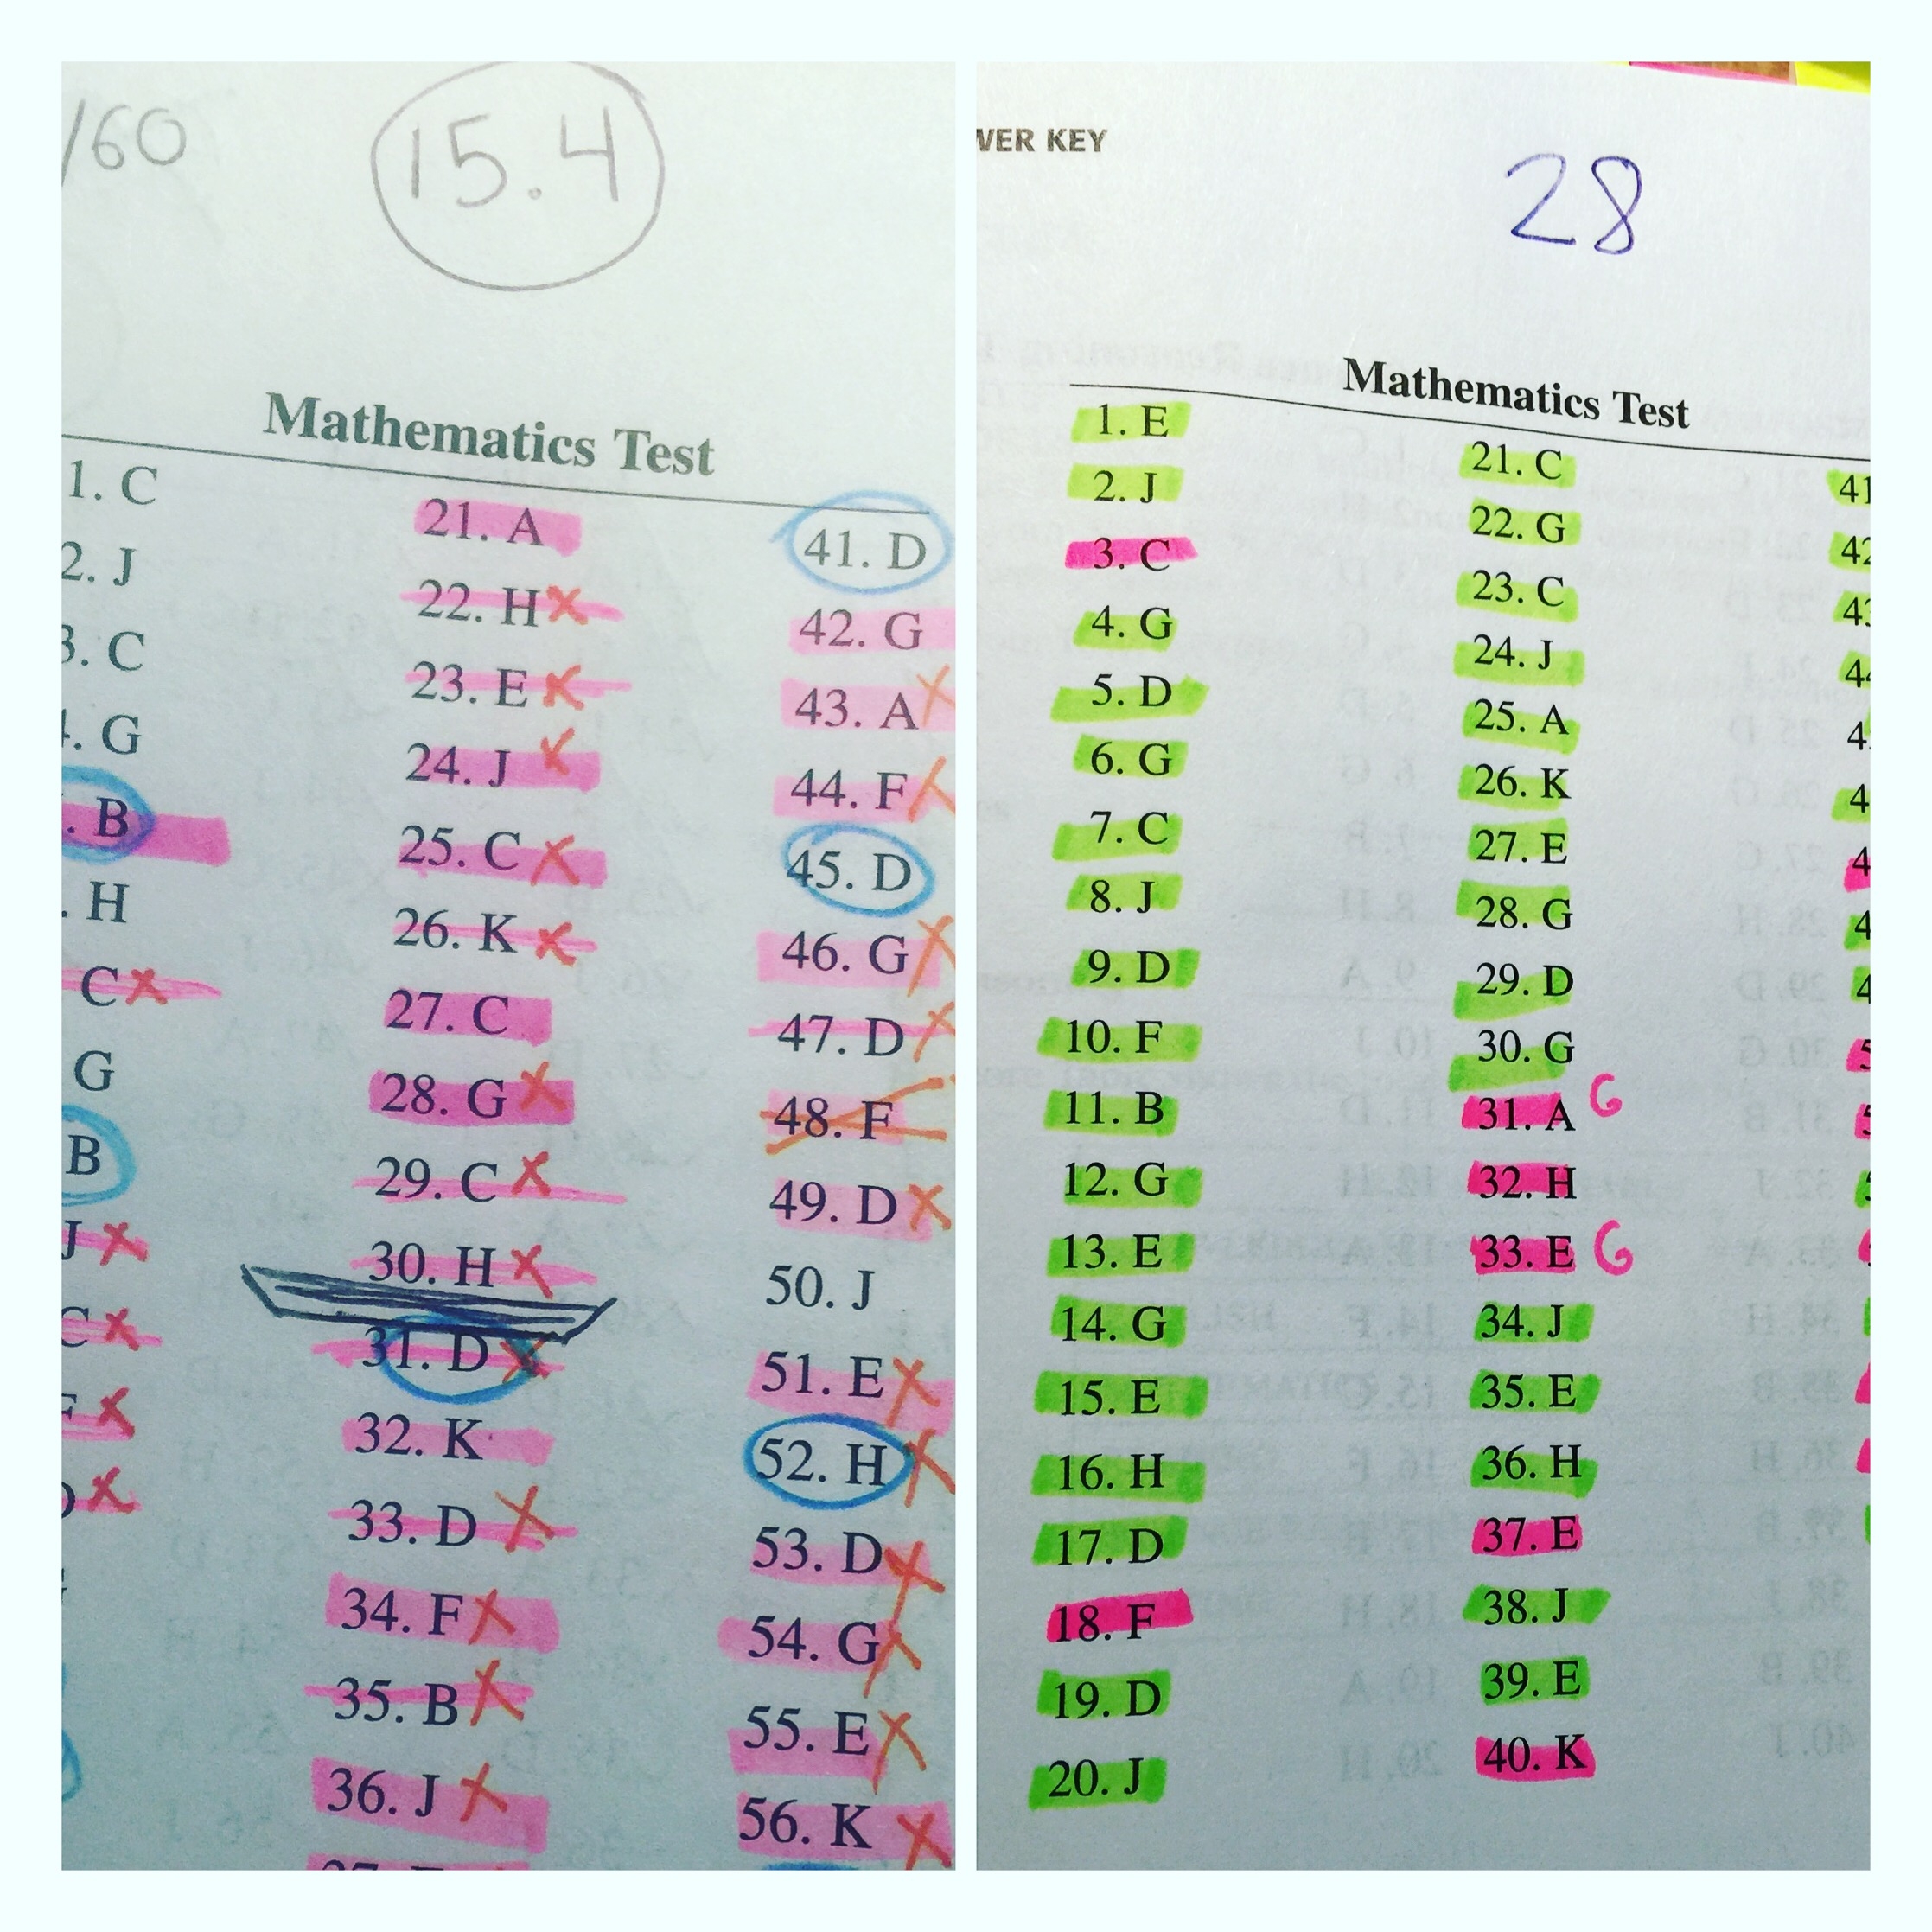 /60
15.4
Mathematics Test
1. C
2. J
3. C
4. G
. B
. H
C X
G
B
J X
C X
X
X
21. A
22. H X
23. E X
24. J X
25. C X
26. K X
27. C
28. G X
29. C X
30. H X
31. D X
32. K
33. D X
34. F X
35. B X
36. J X
41. D
42. G
43. A X
44. F X
45. D
46. G X
47. D X
48. F
49. D X
50. J
51. E X
52. H X
53. D X
54. G X
55. E X
56. K X
WER KEY
28
Mathematics Test
1. E
2. J
3. C
4. G
5. D
6. G
7. C
8. J
9. D
10. F
11. B
12. G
13. E
14. G
15. E
16. H
17. D
18. F
19. D
20. J
21. C
22. G
23. C
24. J
25. A
26. K
27. E
28. G
29. D
30. G
31. A G
32. H
33. E G
34. J
35. E
36. H
37. E
38. J
39. E
40. K
41
42
43
44
4
4
4
4
4
5
5